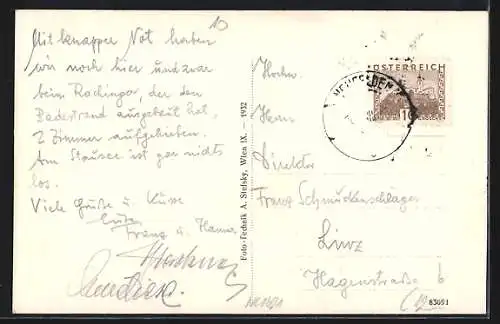 Mit knapper Not haben
wir noch hier und zwar
beim Rachinger, der den
Badestrand ausgebaut hat,
2 Zimmer aufgetrieben.
Am Stausee ist gar nichts
los.
Viele Grüße u. Küsse
Eure
Franz u. Hanna
Foto-Technik A. Stefsky, Wien IX. – 1932
ÖSTERREICH
10
Hochw.
Herrn
Direktor
Franz Schmuckenschläger
Linz
Hagenstraße 6
83091